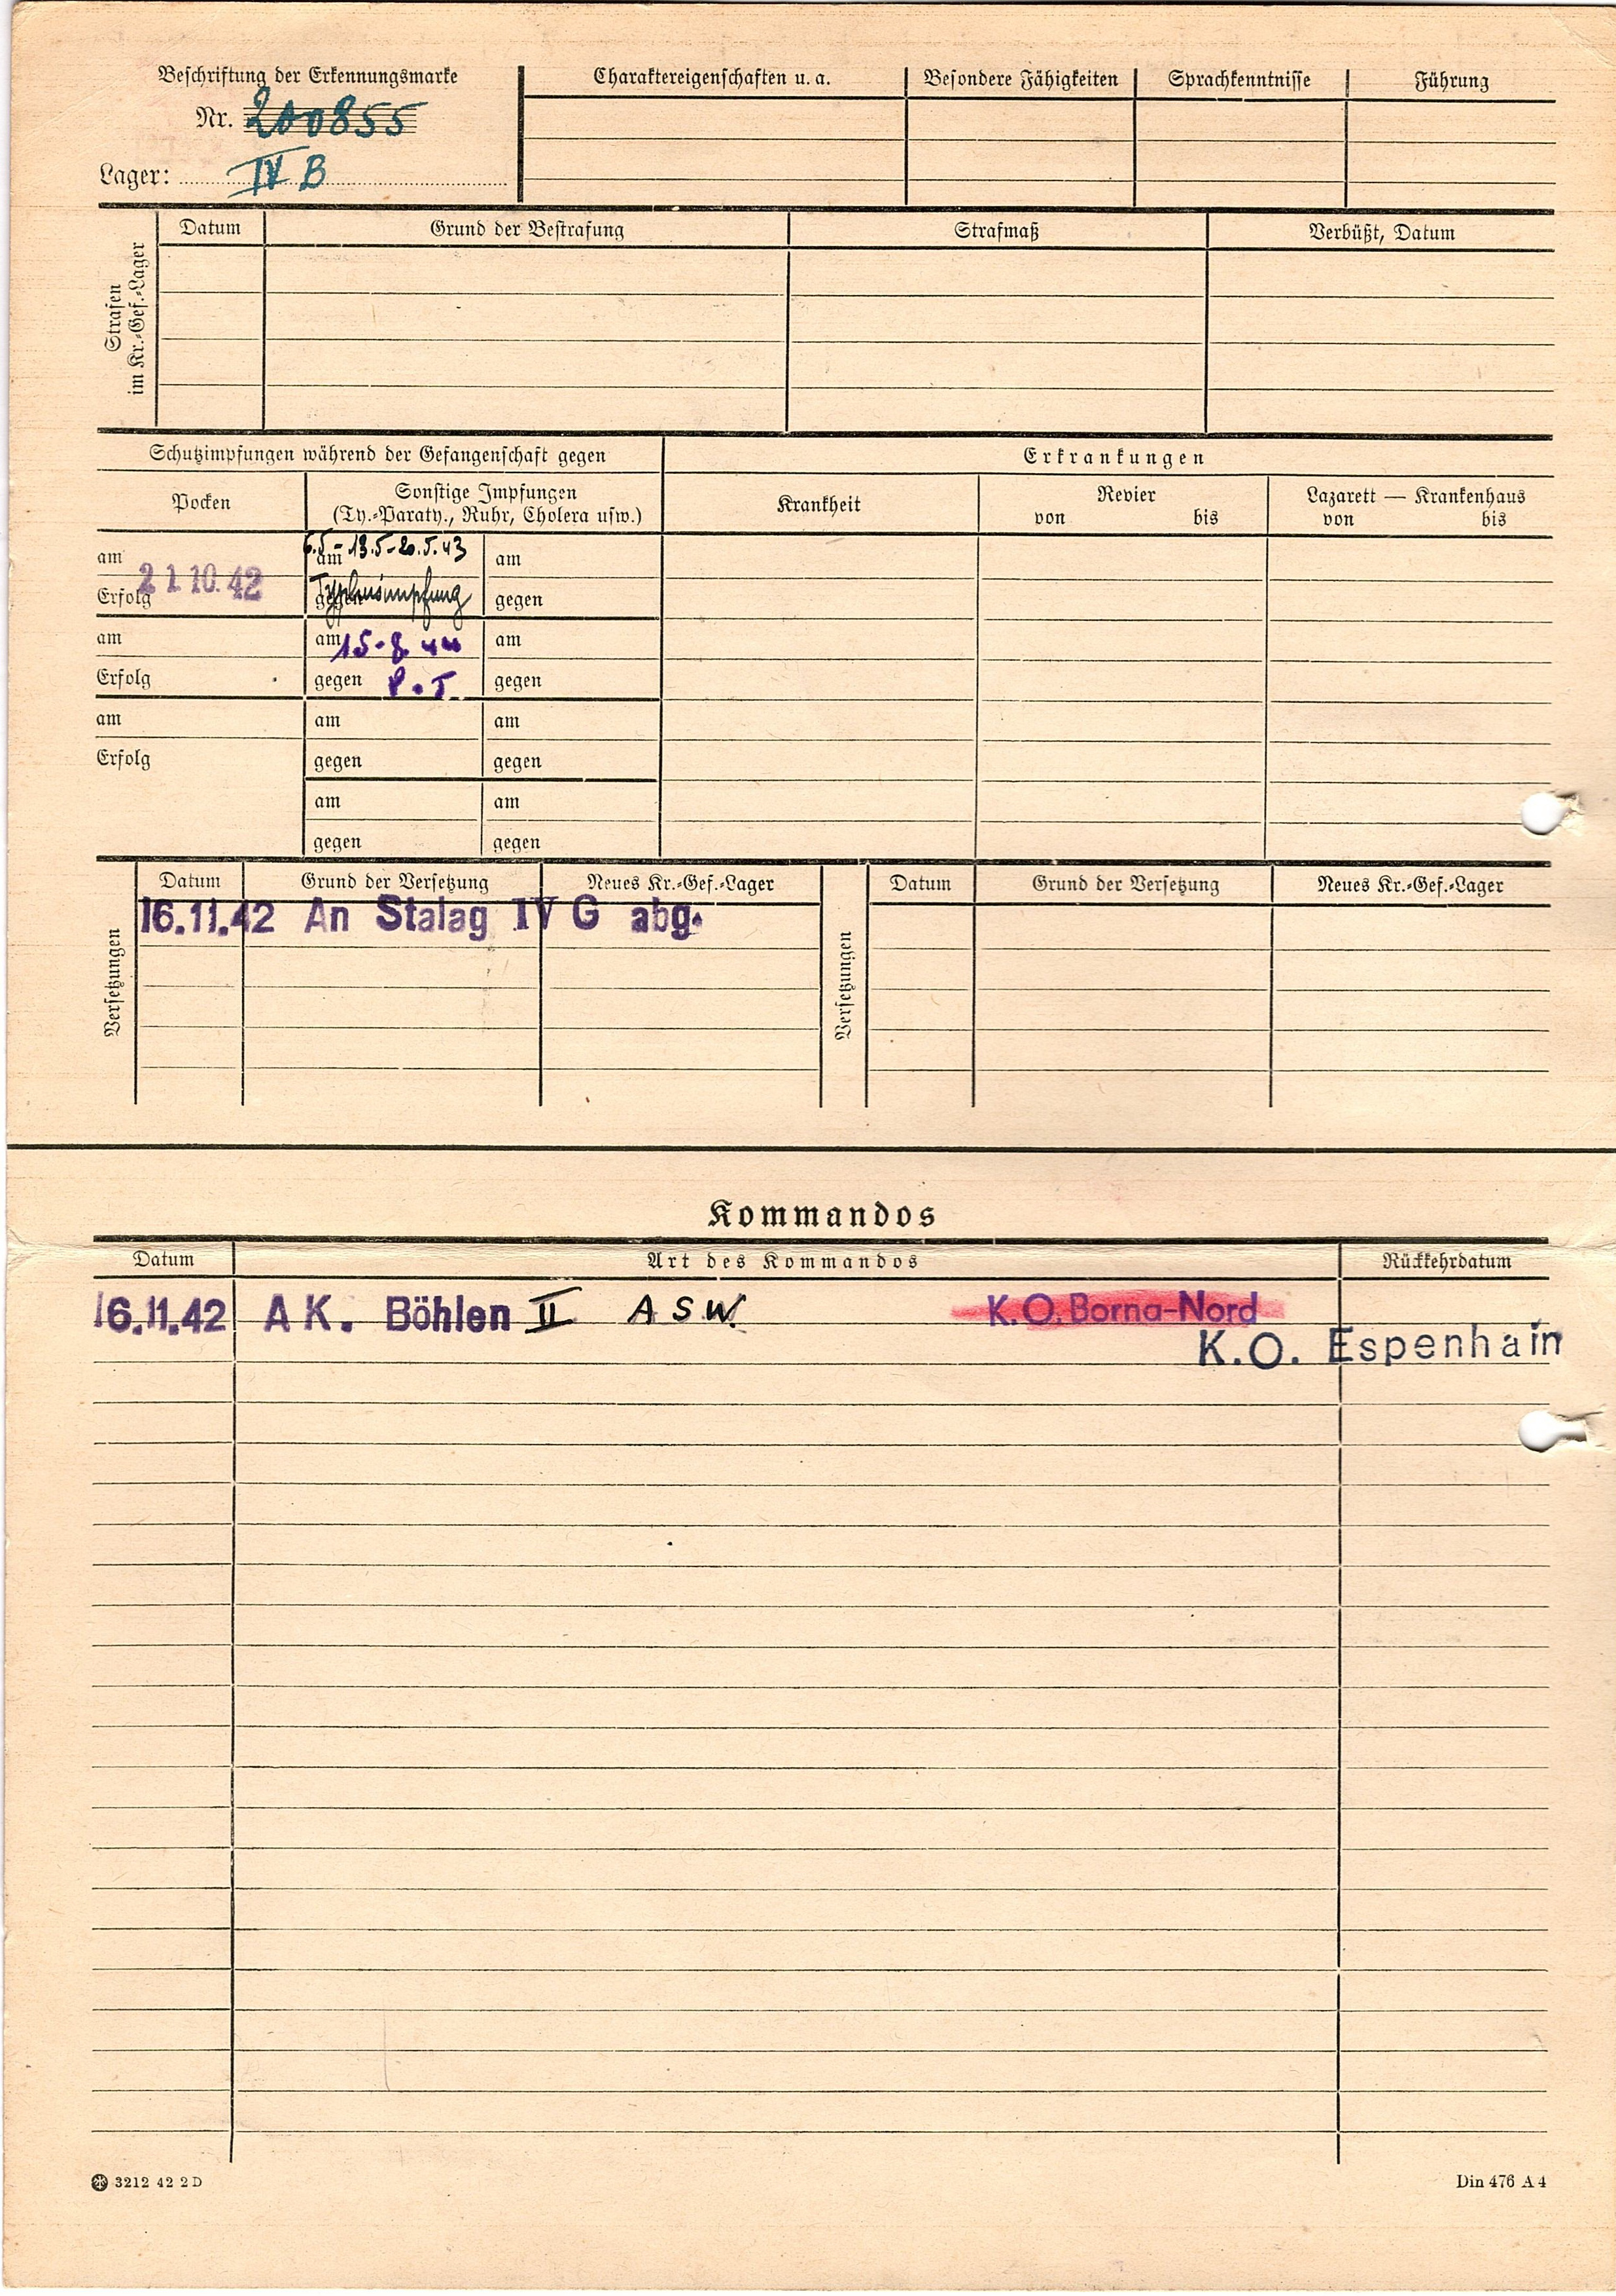 Beschriftung der Erkennungsmarke
Nr. 200855
Lager: IV B
Charaktereigenschaften u. a.
Besondere Fähigkeiten
Sprachkenntnisse
Führung
Strafen
im Kr.-Gef.-Lager
Datum
Grund der Bestrafung
Strafmaß
Verbüßt, Datum
Schutzimpfungen während der Gefangenschaft gegen
Erkrankungen
Pocken
Sonstige Impfungen
(Ty.-Paraty., Ruhr, Cholera usw.)
Krankheit
Revier
von bis
Lazarett — Krankenhaus
von bis
am
21.10.42
Erfolg
am 6.5-13.5-20.5.43
gegen Typhusimpfung
am
gegen
am
Erfolg
am 15-8.44
gegen P.T.
am
gegen
am
Erfolg
am
gegen
am
gegen
am
gegen
am
gegen
Versetzungen
Datum
Grund der Versetzung
Neues Kr.-Gef.-Lager
16.11.42 An Stalag IV G abg.
Versetzungen
Datum
Grund der Versetzung
Neues Kr.-Gef.-Lager
Kommandos
Datum
Art des Kommandos
Rückkehrdatum
16.11.42 A K. Böhlen II A S W. K. O. Borna-Nord
K.O. Espenhain
3212 42 2 D
Din 476 A 4